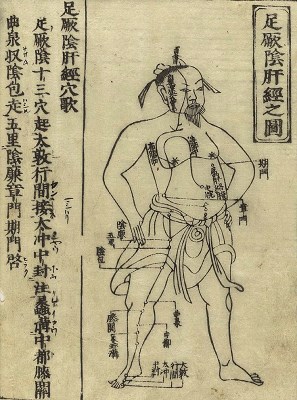 足厥陰肝經之圖
期門
章門
陰廉
五里
陰包
膝關
中都
大敦
行間
太冲
中封
足厥陰肝經穴歌
足厥陰十三穴起太敦行間接太冲中封注蠡溝中都膝關
曲泉収陰包走五里陰廉章門期門啓